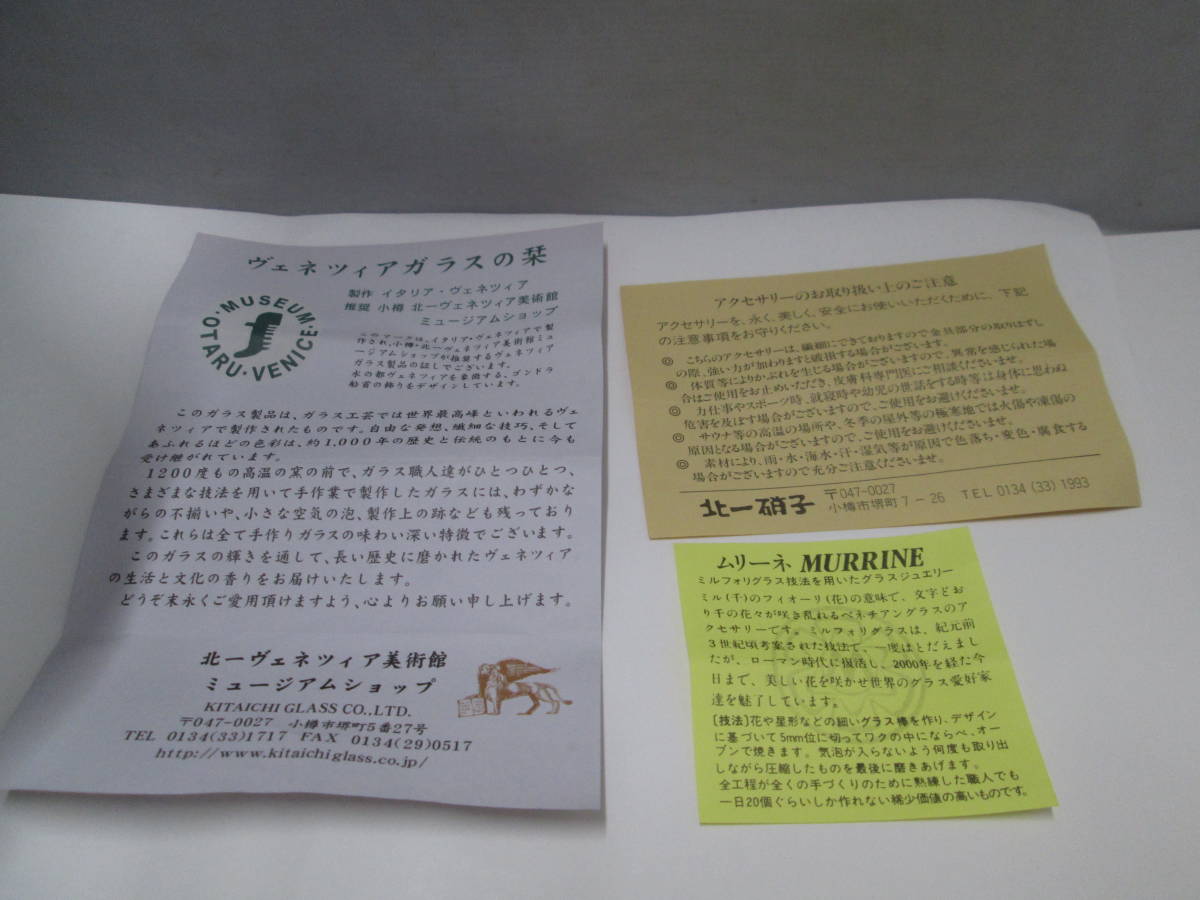 ヴェネツィアガラスの栞
製作 イタリア・ヴェネツィア
推奨 小樽 北一ヴェネツィア美術館
ミュージアムショップ
MUSEUM・VENICE・OTARU・
このマークは、イタリア・ヴェネツィアで製
作され、小樽・北一ヴェネツィア美術館ミュ
ージアムショップが推奨するヴェネツィア
ガラス製品の証しでございます。
水の都ヴェネツィアを象徴する、ゴンドラ
船首の飾りをデザインしています。
このガラス製品は、ガラス工芸では世界最高峰といわれるヴェ
ネツィアで製作されたものです。自由な発想、繊細な技巧、そして
あふれるほどの色彩は、約1,000年の歴史と伝統のもとに今も
受け継がれています。
1200度もの高温の窯の前で、ガラス職人達がひとつひとつ、
さまざまな技法を用いて手作業で製作したガラスには、わずかな
がらの不揃いや、小さな空気の泡、製作上の跡なども残っており
ます。これらは全て手作りガラスの味わい深い特徴でございます。
このガラスの輝きを通して、長い歴史に磨かれたヴェネツィア
の生活と文化の香りをお届けいたします。
どうぞ末永くご愛用頂けますよう、心よりお願い申し上げます。
北一ヴェネツィア美術館
ミュージアムショップ
KITAICHI GLASS CO.,LTD.
〒047-0027 小樽市堺町5番27号
TEL 0134(33)1717 FAX 0134(29)0517
http://www.kitaichiglass.co.jp/
アクセサリーのお取り扱い上のご注意
アクセサリーを、永く、美しく、安全にお使いいただくために、下記
の注意事項をお守りください。
◎ こちらのアクセサリーは、繊細にできておりますので金具部分の取りはずし
の際、強い力が加わりますと破損する場合がございます。
◎ 体質等によりかぶれを生じる場合がございますので、異常を感じられた場
合はご使用をお止めいただき、皮膚科専門医にご相談くださいませ。
◎ 力仕事やスポーツ時、就寝時や幼児の世話をする時等は身体に思わぬ
危害を及ぼす場合がございますので、ご使用をお避けくださいませ。
◎ サウナ等の高温の場所や、冬季の屋外等の極寒地では火傷や凍傷の
原因となる場合がございますので、ご使用をお避けくださいませ。
◎ 素材により、雨・水・海水・汗・湿気等が原因で色落ち・変色・腐食する
場合がございますので充分ご注意くださいませ。
北一硝子 〒047-0027
小樽市堺町7-26 TEL 0134 (33) 1993
ムリーネ MURRINE
ミルフォリグラス技法を用いたグラスジュエリー
ミル(千)のフィオーリ(花)の意味で、文字どお
り千の花々が咲き乱れるベネチアングラスのア
クセサリーです。ミルフォリグラスは、紀元前
3世紀頃考案された技法で、一度はとだえまし
たが、ローマン時代に復活し、2000年を経た今
日まで、美しい花を咲かせ世界のグラス愛好家
達を魅了しています。
[技法]花や星形などの細いグラス棒を作り、デザイン
に基づいて5mm位に切ってワクの中にならべ、オー
ブンで焼きます。気泡が入らないよう何度も取り出
しながら圧縮したものを最後に磨きあげます。
全工程が全くの手づくりのために熟練した職人でも
一日20個ぐらいしか作れない稀少価値の高いものです。